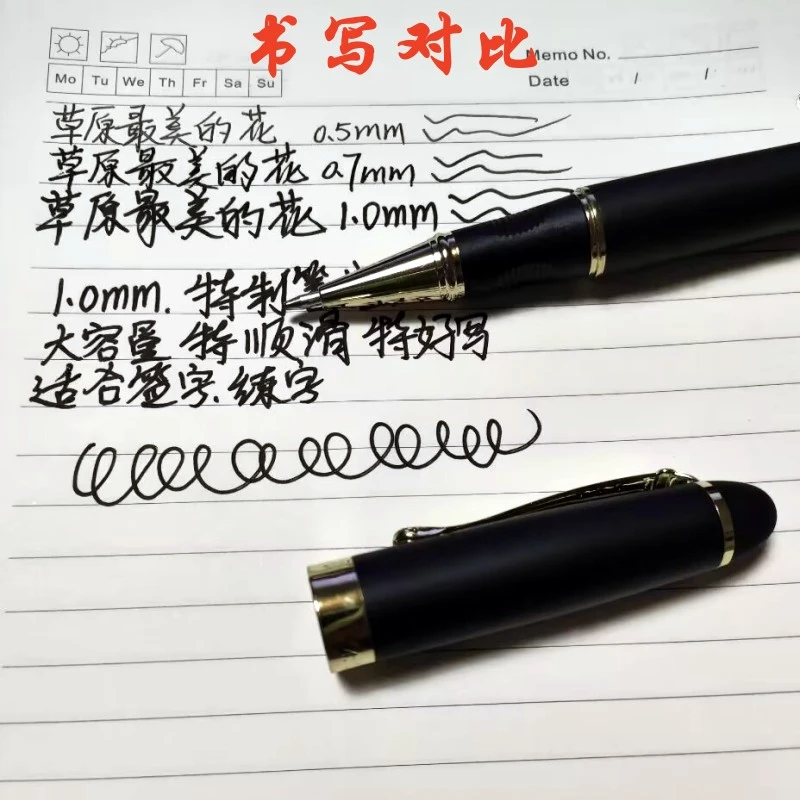 书写对比
Memo No.
Mo Tu We Th Fr Sa Su
Date / /
草原最美的花 0.5mm
草原最美的花 0.7mm
草原最美的花 1.0mm
1.0mm. 特制
大容量 特顺滑 特好写
适合签字.练字